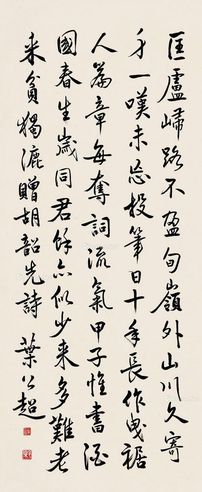 匡廬歸路不盈旬嶺外山川久寄
身一嘆未忘投筆日十年長作曳裾
人篇章每奪詞流氣甲子惟書酒
國春生歲同君餘亦似少来多難老
来貧獨漉贈胡韶先詩 葉公超